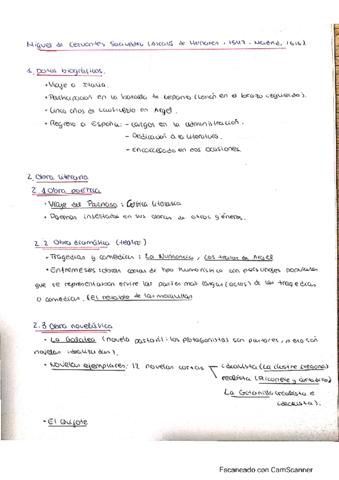 Miguel de Cervantes Saavedra (Alcalá de Henares, 1547 - Madrid, 1616)
1. Datos biográficos.
• Viaje a Italia.
• Participación en la batalla de Lepanto (lesión en el brazo izquierdo).
• Cinco años de cautiverio en Argel
• Regreso a España: - Cargos en la administración.
- Dedicación a la literatura.
- Encarcelado en dos ocasiones.
2. Obra literaria
2.1 Obra poética
• Viaje del Parnaso: Crítica literaria
• Poemas insertados en sus obras de otros géneros.
2.2 Obra dramática (teatro)
• Tragedias y comedias: La Numancia, Los tratos de Argel
• Entremeses (obras cortas de tipo humorístico con personajes populares
que se representaban entre las partes más largas (actos) de las tragedias
o comedias. (El retablo de las maravillas
2.3 Obra novelística
• La Galatea (novela pastoril: los protagonistas son pastores, pero son
novelas idealizadas).
• Novelas ejemplares: 12 novelas cortas idealista (La ilustre fregona)
realista (Rinconete y Cortadillo)
La Gitanilla (realista e
idealista).
• El Quijote
Escaneado con CamScanner